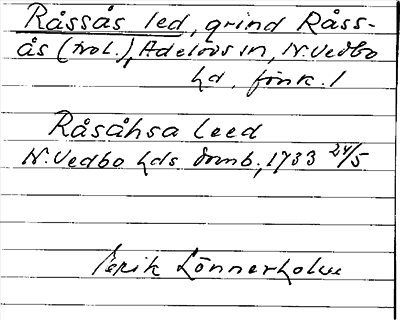 Råssås led, grind Råss-
ås (trol.), Adelövs sn, N. Vedbo
hd, förk. l
Råsåhsa leed
N. Vedbo hds domb., 1733 24/5
Erik Lönnerholm